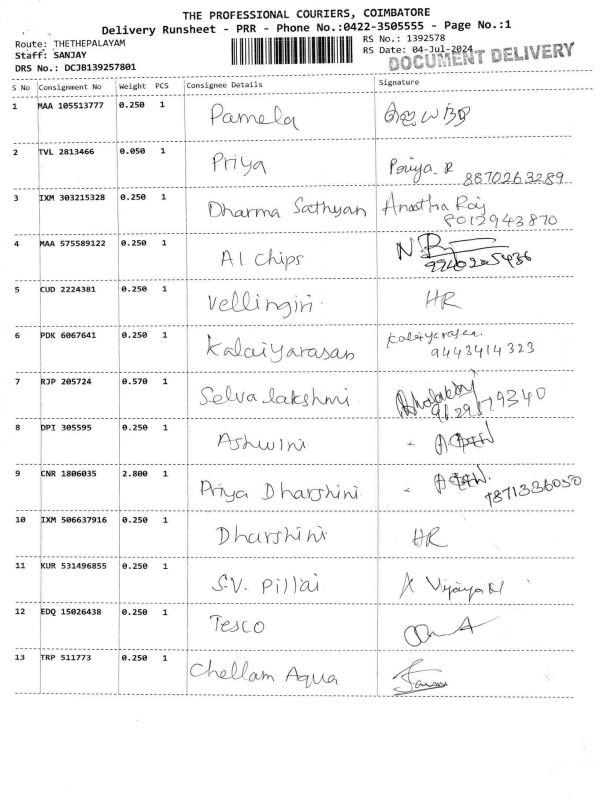 THE PROFESSIONAL COURIERS, COIMBATORE
Delivery Runsheet - PRR - Phone No.:0422-3505555 - Page No.:1
Route: THETHEPALAYAM
RS No.: 1392578
Staff: SANJAY
RS Date: 04-Jul-2024
DOCUMENT DELIVERY
DRS No.: DCJB139257801
S No Consignment No Weight PCS Consignee Details Signature
1 MAA 105513777 0.250 1 Pamela
2 TVL 2813466 0.050 1 Priya Priya R
8870263289
3 IXM 303215328 0.250 1 Dharma Sathyan
8012943870
4 MAA 575589122 0.250 1 A1 chips
5 CUD 2224381 0.250 1 Vellingiri HR
6 PDK 6067641 0.250 1 Kalaiyarasan Kalaiyarasan
9443414323
7 RJP 205724 0.570 1 Selva lakshmi
8 DPI 305595 0.250 1 Ashwini
9 CNR 1806035 2.800 1 Priya Dharshini
10 IXM 506637916 0.250 1 Dharshini HR
11 KUR 531496855 0.250 1 S.V. Pillai
12 EDQ 15026438 0.250 1 Tesco
13 TRP 511773 0.250 1 Chellam Aqua